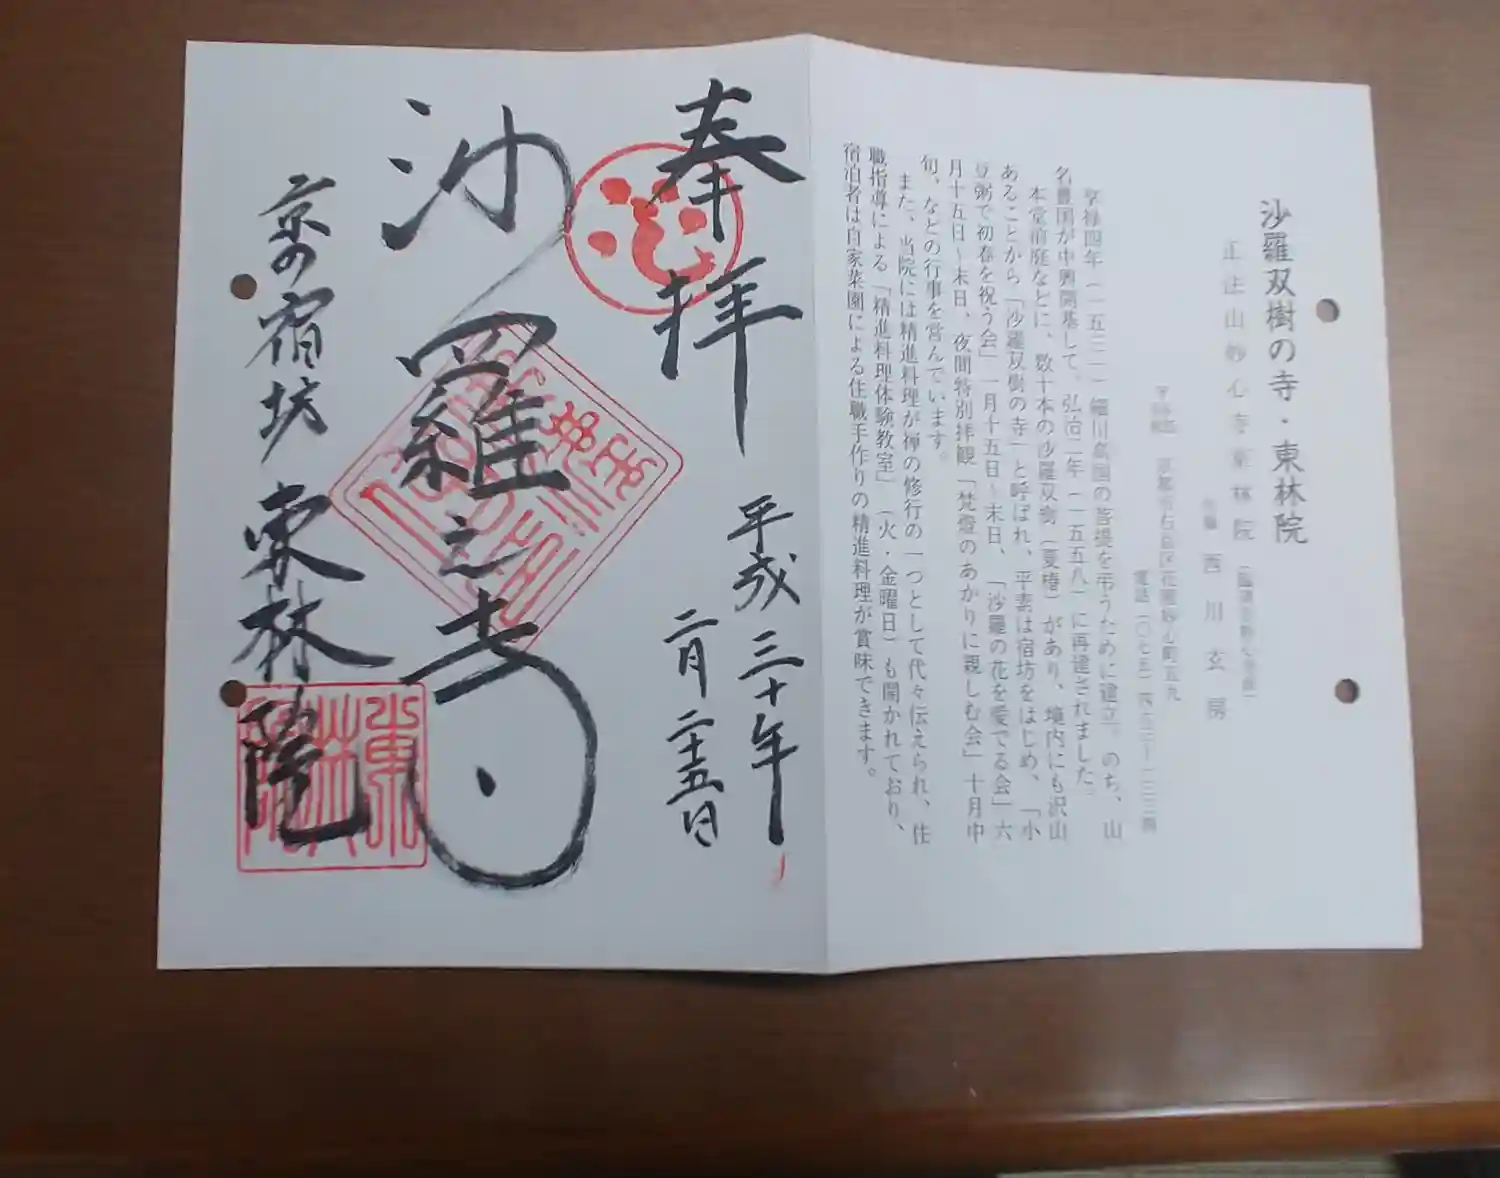 沙羅双樹の寺・東林院
正法山妙心寺東林院
西川玄房
京都市右京区花園妙心寺町五九
享禄四年（一五三一）細川高国の菩提を弔うために建立。のち、山
名豊国が中興開基して、弘治二年（一五五八）に再建されました。
本堂前庭などに、数十本の沙羅双樹（夏椿）があり、境内にも沢山
あることから「沙羅双樹の寺」と呼ばれ、平素は宿坊をはじめ、「小
豆粥で初春を祝う会」一月十五日～末日、「沙羅の花を愛でる会」六
月十五日～末日、夜間特別拝観「梵燈のあかりに親しむ会」十月中
旬、などの行事を営んでいます。
また、当院には精進料理が禅の修行の一つとして代々伝えられ、住
職指導による「精進料理体験教室」（火・金曜日）も開かれており、
宿泊者は自家菜園による住職手作りの精進料理が賞味できます。
奉拝
平成三十年
二月二十五日
沙羅之寺
京の宿坊 東林院
東林院